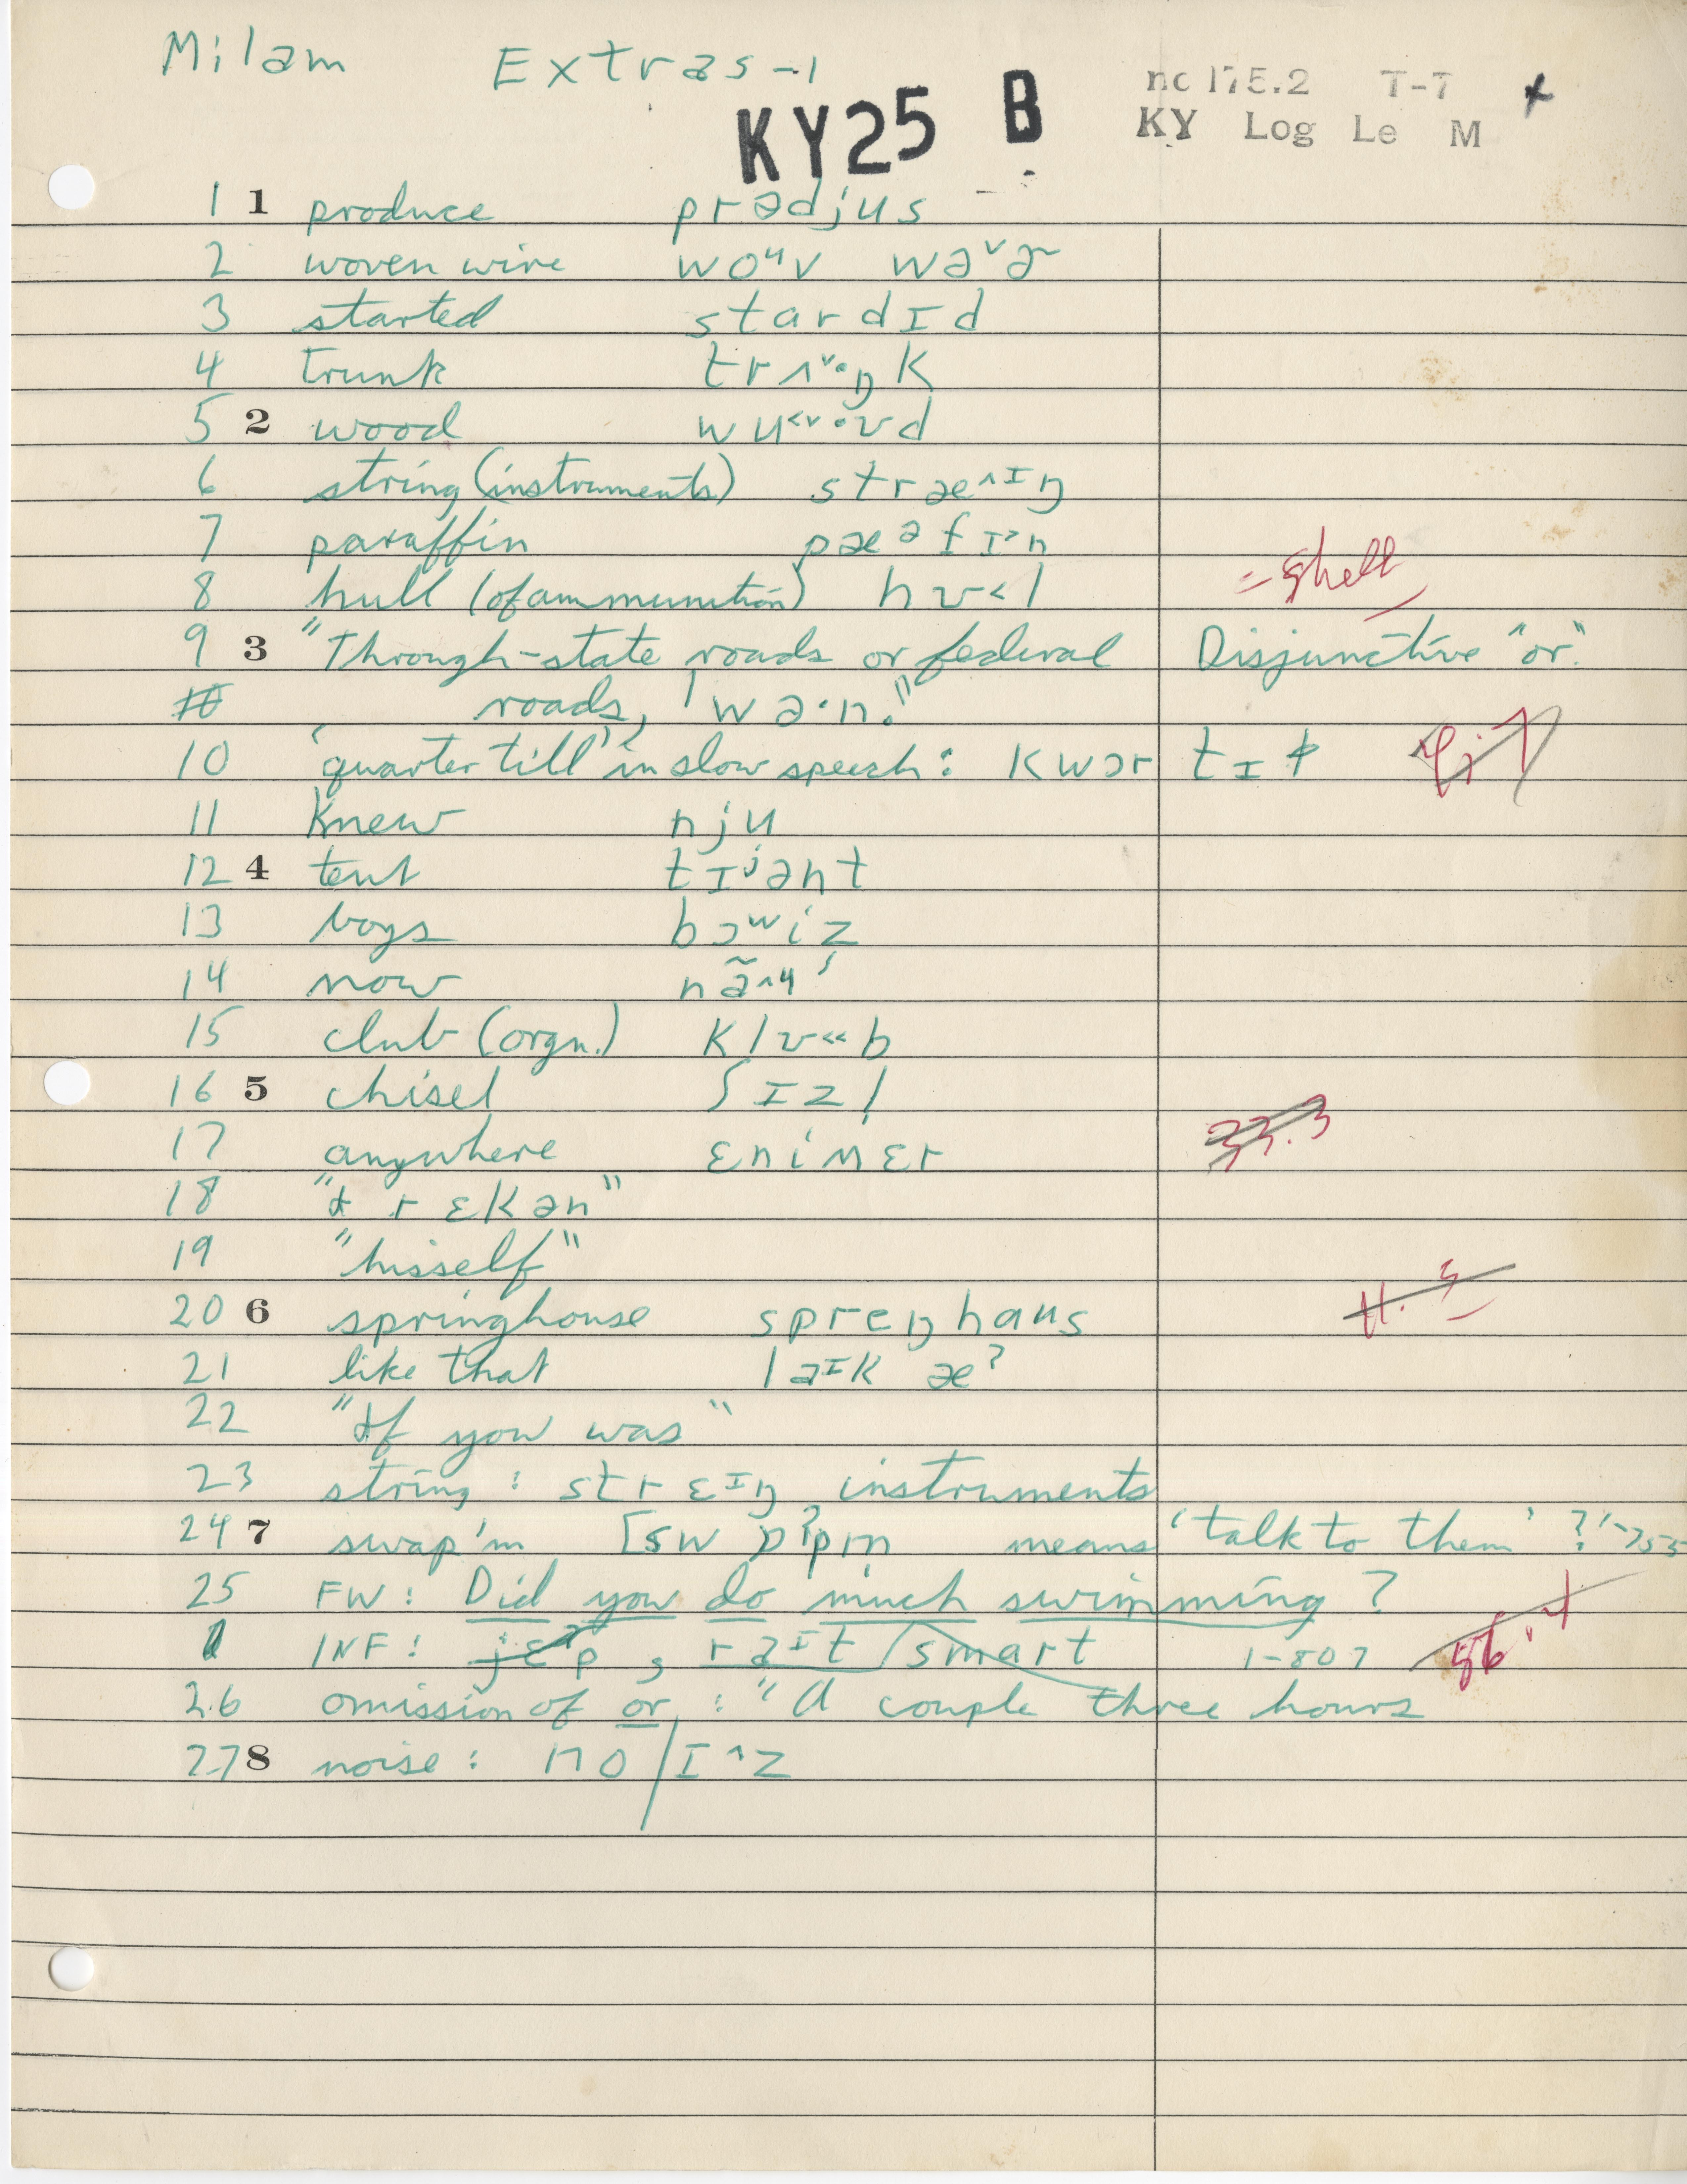 Milam Extras-1
KY25 B
nc 175.2 T-7 x
KY Log Le M
1 1 produce prədjus
2 woven wire woᵘv wə˅ɚ
3 started stardɪd
4 trunk trʌ˅·ŋk
5 2 wood wu˂˅·ʊd
6 string (instruments) stræ˄ᴵŋ
7 paraffin pæᵊfɪ˃n
8 hull (of ammunition) hʊ˂l = shell
9 3 "Through-state roads or federal Disjunctive "or".
roads, 'wə·n."
10 'quarter till' in slow speech: kwɔr tɪɫ
11 knew nju
12 4 tent tɪʲənt
13 boys bɔʷiz
14 now
15 club (orgn.) klʊ˂˂b
16 5 chisel ʃɪzl̩
17 anywhere ɛniʍɛr 33.3
18 "ɪrɛkən"
19 "hisself"
20 6 springhouse spreŋhaus
21 like that laᴵk æʔ
22 "If you was"
23 string: strɛᴵŋ instruments
24 7 swap'm means 'talk to them' ? 1-755
25 FW: Did you do much swimming?
INF: jɛˀp, raᴵt/smart 1-807 56.4
26 omission of or: "A couple three hours
27 8 noise: no/ɪ˄z